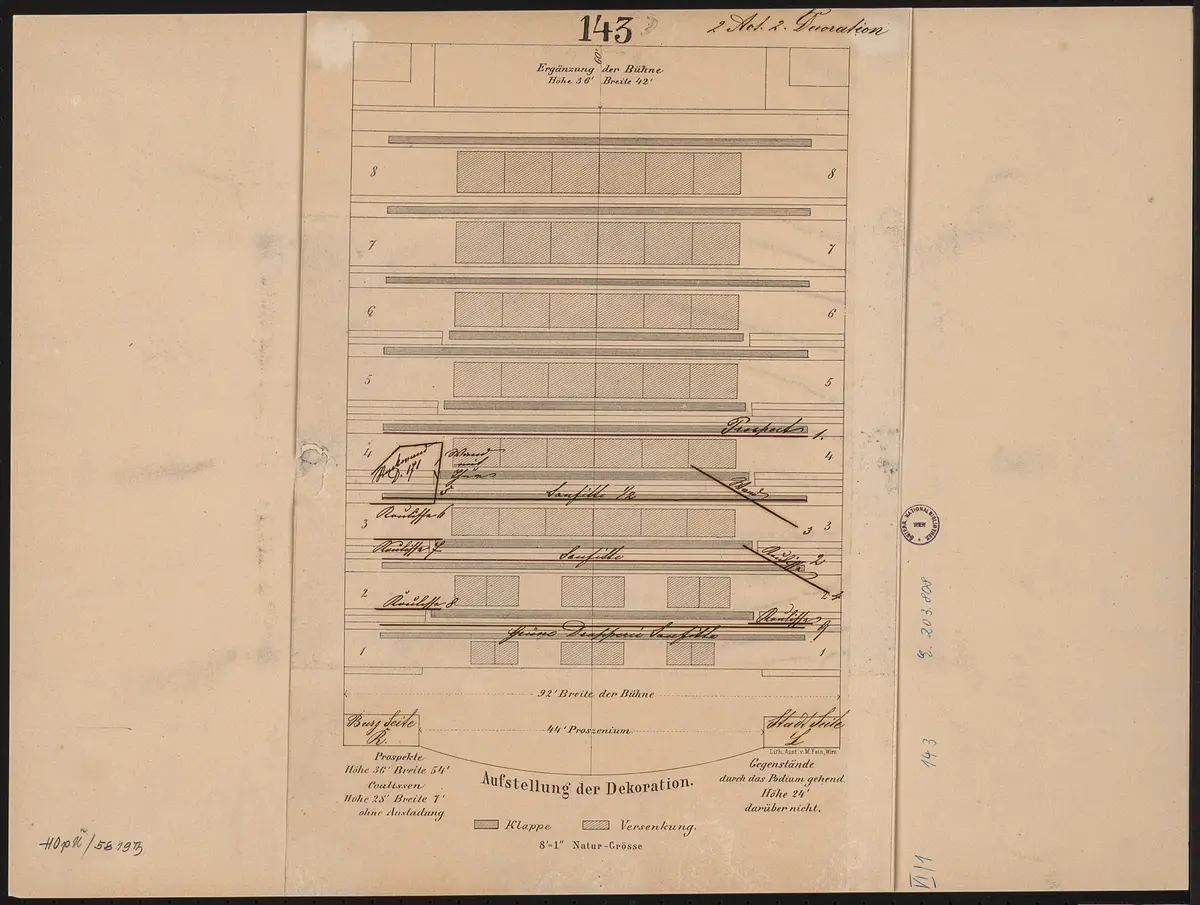 143
2 Act. 2. Decoration
60'
Ergänzung der Bühne
Höhe 36' Breite 42'
8 8
7 7
6 6
5 5
Prospect 1.
4 4
Wand
mit
5
Wand
Soufitte 1/2
Koulisse 6
3 3
3
Koulisse 7
Soufitte
Koulisse
2
2
Koulisse 8
Koulisse
9
Grüne Drapperie Soufitte
1 1
92' Breite der Bühne
Burg Seite
R.
44' Proszenium
Stadt Seite
L
Lith. Anst. v. M. Fein, Wien
Prospekte
Höhe 36' Breite 54'
Coulissen
Höhe 28' Breite 7'
ohne Ausladung
Aufstellung der Dekoration.
Gegenstände
durch das Podium gehend
Höhe 24'
darüber nicht.
Klappe Versenkung.
8'=1" Natur-Grösse
NATIONALBIBLIOTHEK
WIEN
203.808
143
VI/1